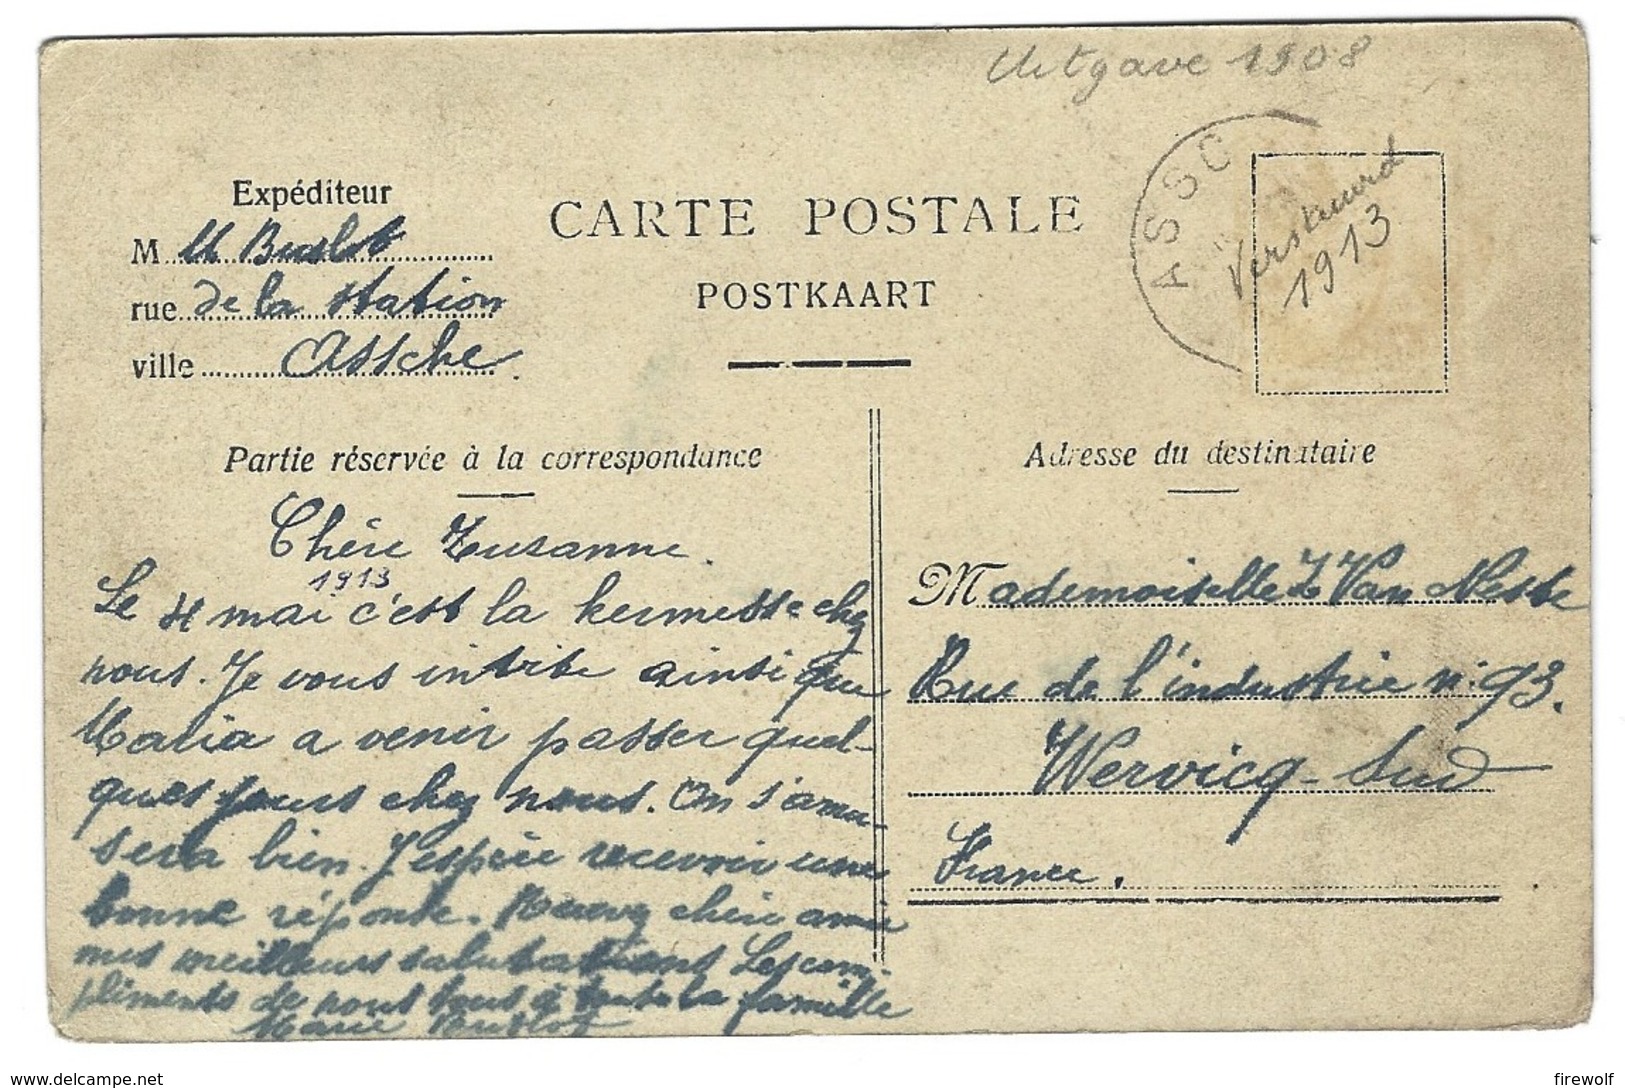 Uitgave 1908
ASSC
Verstuurd
1913
Expéditeur
M M Buslot
rue de la station
ville Assche.
CARTE POSTALE
POSTKAART
Partie réservée à la correspondance
Adresse du destinataire
Chère Zusanne.
1913
Le mai c'est la kermesse chez
nous. Je vous invite ainsi que
Maria a venir passer quel-
ques jours chez nous. On s'amu-
sera bien. J'espère recevoir une
bonne réponse. Recevez chère amie
mes meilleurs salutations Les com-
pliments de nous tous à toute la famille
Marie Buslot
Mademoiselle Z Van Neste
Rue de l'industrie n: 93.
Wervicq-Sud
France.
http://www.delcampe.net
firewolf